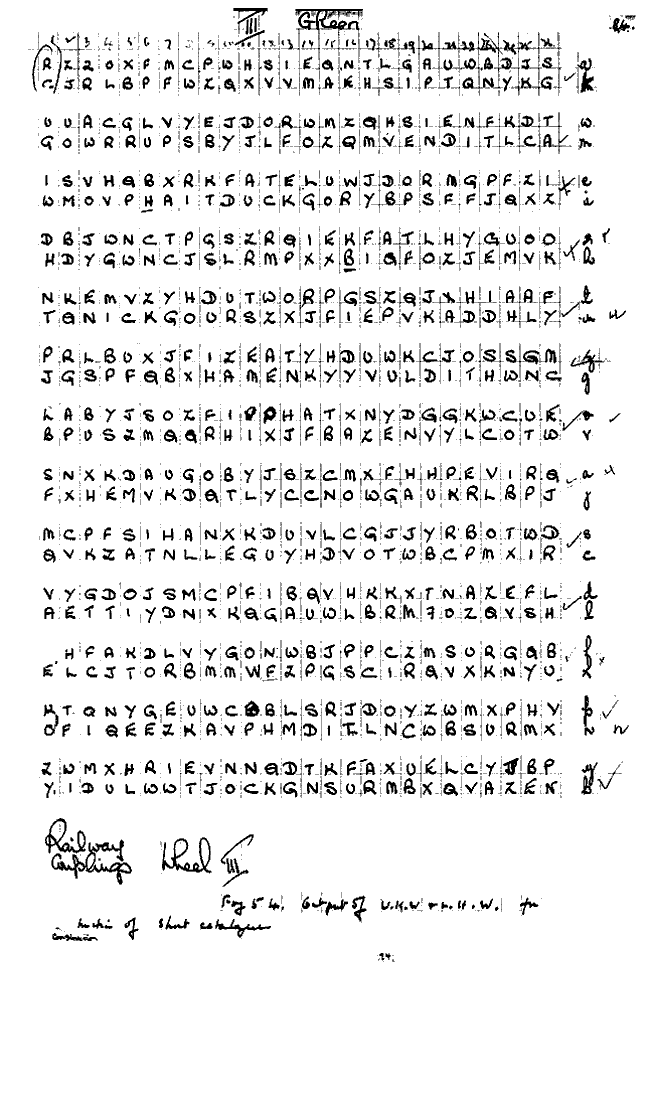 III GReen 24.
1 2 3 4 5 6 7 8 9 10 11 12 13 14 15 16 17 18 19 20 21 22 23 24 25 26
R Z 2 O X F M C P W H S I E Q N T L G A U W B D J S
C J R L B P F W Z Q X V V M A E H S I P T Q N Y K G k
U U A C G L V Y E J D O R W M Z Q H S I E N F K D T w
G O W R R U P S B Y J L F O Z Q M V E N D I T L C A m
I S V H Q B X R K F A T E L U W J D O R M G P F Z I e
W M O V P H A I T D U C K G O R Y B P S F F J Q X Z i
D B J W N C T P G S Z R Q I E K F A T L H Y G U O O
H D Y G W N C J S L R M P X X B I Q F O Z J E M V K h
N K E M V Z Y H D U T W O R P G S Z Q J X H I A A F t
T Q N I C K G O U R S Z X J F I E P V K A D D H L Y u
P R L B U X J F I Z E A T Y H D U W K C J O S S G M
J G S P F Q B X H A M E N K Y Y V U L D I T H W N C g
L A B Y J S O Z F I P P H A T X N Y D G G K W C U E o
B P U S Z M Q Q R H I X J F B A Z E N V Y L C O T W v
S N X K D A U G O B Y J S Z C M X F H H P E V I R Q a
F X H E M V K D Q T L Y C C N O W G A U K R L B P J j
M C P F S I H A N X K D U V L C G J J Y R B O T W D s
Q V K Z A T N L L E G U Y H D V O T W B C P M X I R c
V Y G D O J S M C P F I B Q V H K K X T N A Z E F L d
A E T T I Y D N I X K Q G A U W L B R M J O Z Q V S H l
H F A K D L V Y G O N W B J P P C Z M S U R G Q B f
E L C J T O R B M M W F Z P G S C I R Q V X K N Y U x
K T Q N Y G E U W C B L S R J D O Y Z W M X P H V p
O F I Q E E Z K A V P H M D I T L N C W B S U R M X n
Z W M X H R I E V N N Q D T K F A X U E L C Y J B P y
Y I D U L W W T J O C K G N S U R M B X Q V A Z E N b
Railway
Couplings Wheel III
Output of U.K.W & L.H.W. for
construction of short catalogue
24.